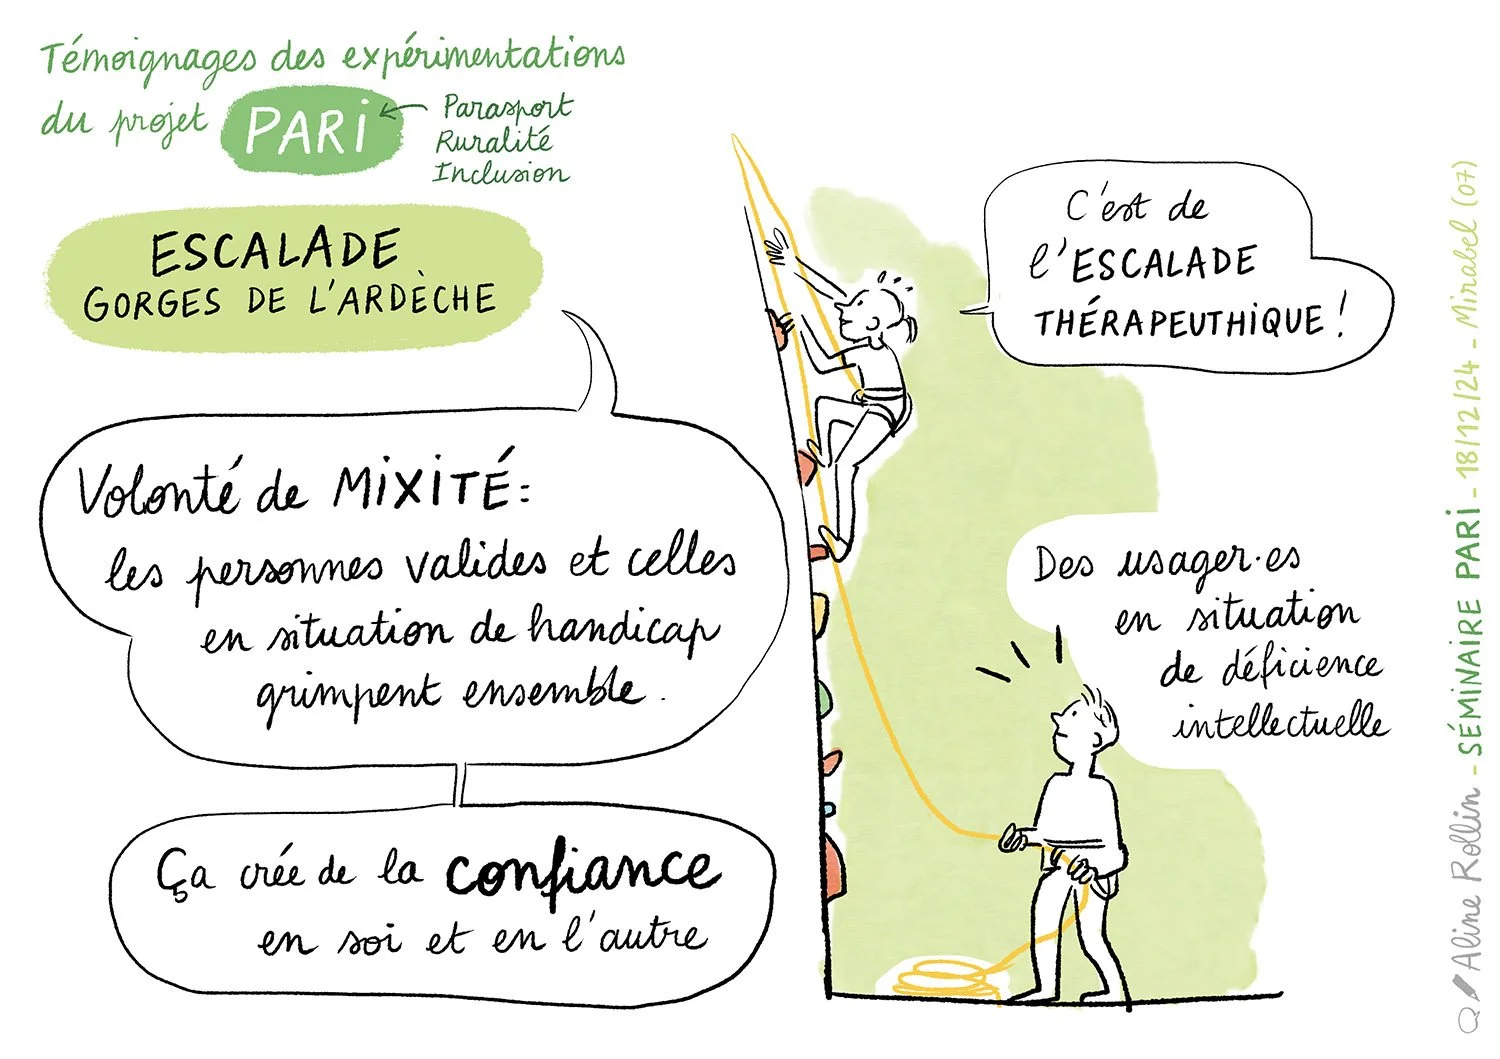 Témoignages des expérimentations
du projet PARi
Parasport
Ruralité
Inclusion
ESCALADE
GORGES DE L'ARDÈCHE
Volonté de MiXiTÉ :
les personnes valides et celles
en situation de handicap
grimpent ensemble.
Ça crée de la confiance
en soi et en l'autre
C'est de
l'ESCALADE
THÉRAPEUTHiQUE !
Des usager·es
en situation
de déficience
intellectuelle
Aline Rollin - SÉMiNAiRE PARi - 18/12/24 - Mirabel (07)